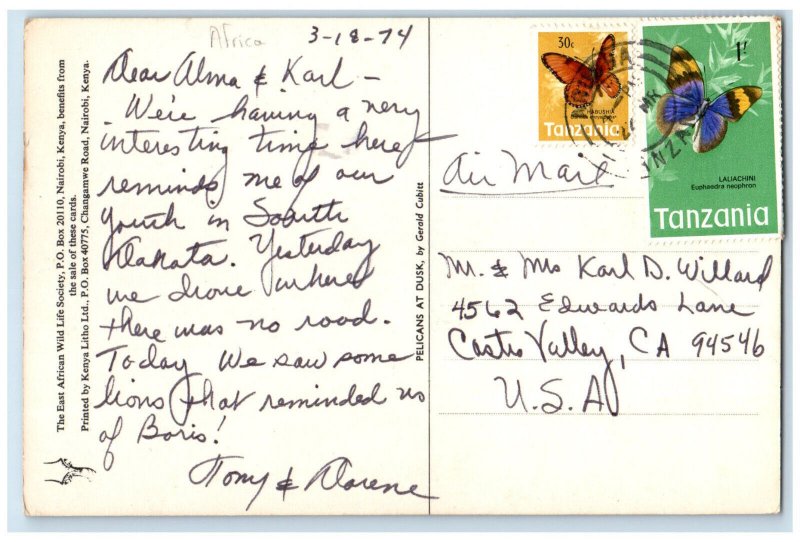 Africa
3-18-74
Dear Alma & Karl —
We're having a very
interesting time here
reminds me of our
youth in South
Dakota. Yesterday
we drove where
there was no road.
Today we saw some
lions that reminded us
of Boris!
Tony & Dorene
The East African Wild Life Society, P.O. Box 20110, Nairobi, Kenya, benefits from
the sale of these cards.
Printed by Kenya Litho Ltd., P.O. Box 40775, Changamwe Road, Nairobi, Kenya.
PELICANS AT DUSK, by Gerald Cubitt
30c
Tanzania
1/-
LALIACHINI
Euphaedra neophron
Tanzania
Air Mail
Mr. & Mrs Karl D. Willard
4562 Edwards Lane
Castro Valley, CA 94546
U.S.A